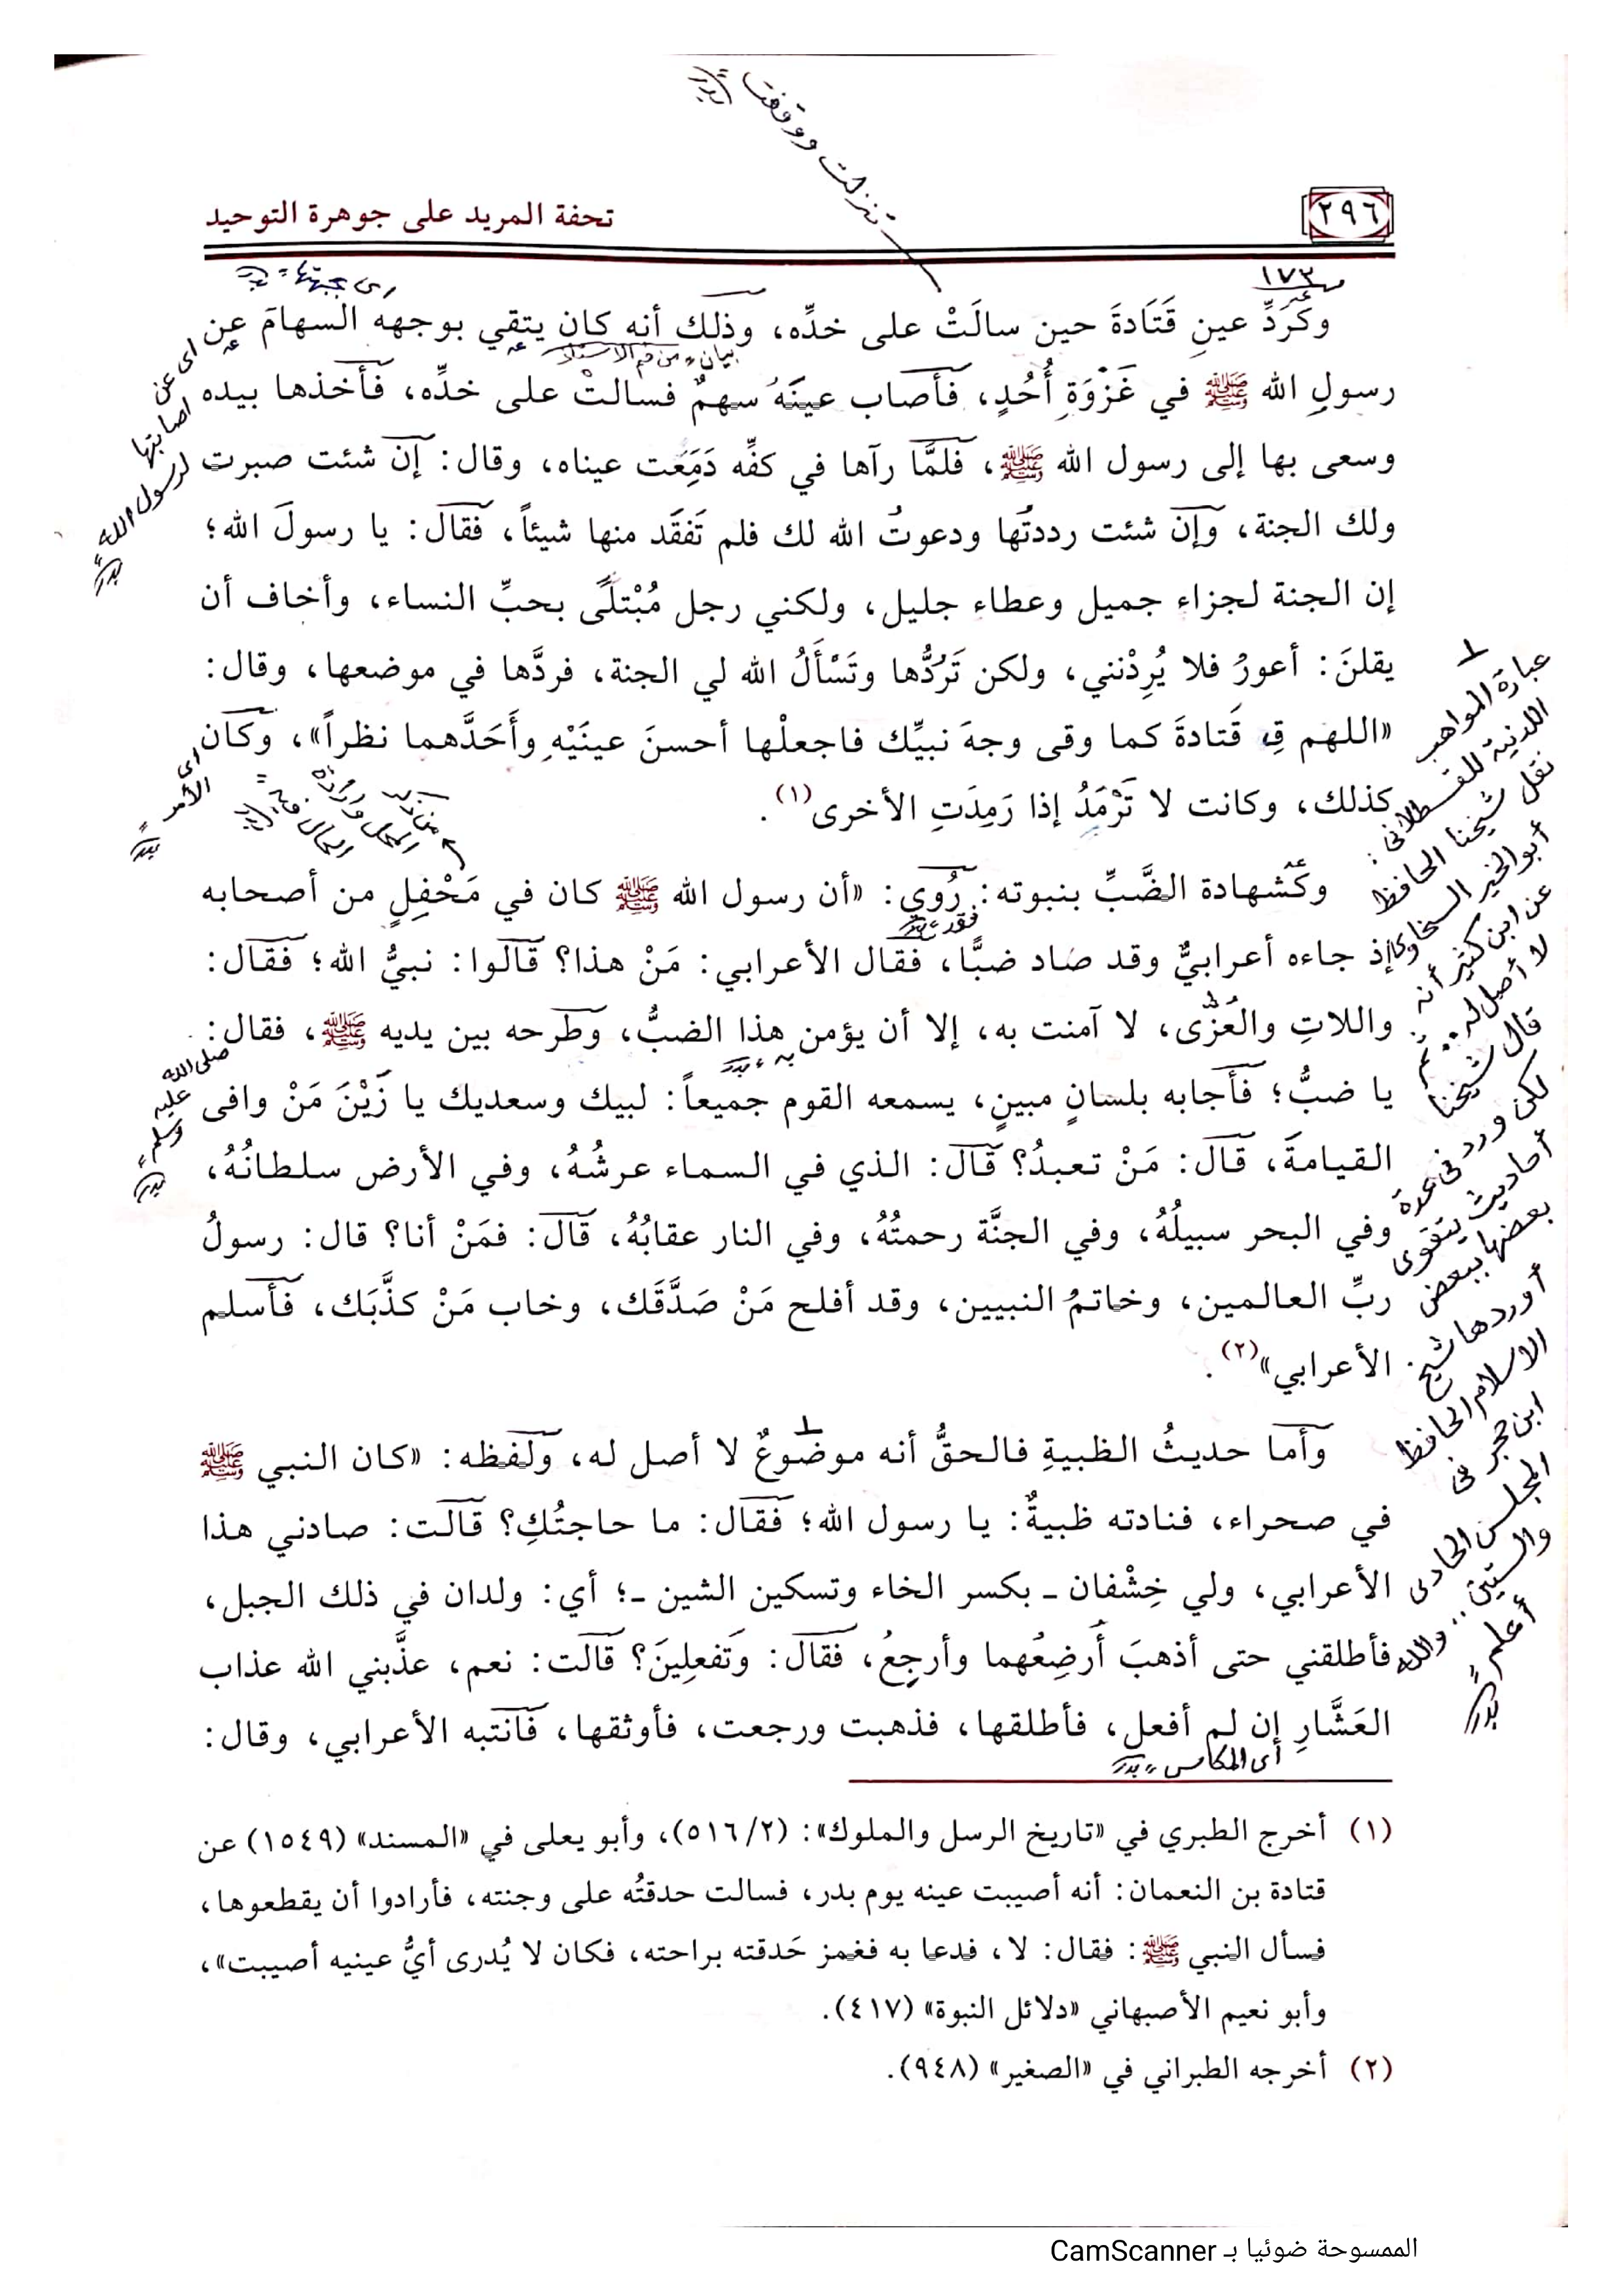 تنزلت ووقفت
٢٩٦
تحفة المريد على جوهرة التوحيد
١٧٣
اى بجبهتها
وكَرَدِّ عينِ قَتَادةَ حين سالَتْ على خدِّه، وذلك أنه كان يتقي بوجهه السهامَ عن
رسولِ الله ﷺ في غَزْوَةِ أُحُدٍ، فأصاب عينَهُ سهمٌ فسالتْ على خدِّه، فأخذها بيده
وسعى بها إلى رسول الله ﷺ، فلمَّا رآها في كفِّه دَمَعَت عيناه، وقال: إن شئت صبرت
ولك الجنة، وإن شئت رددتُها ودعوتُ الله لك فلم تَفقَد منها شيئاً، فقال: يا رسولَ الله؛
إن الجنة لجزاء جميل وعطاء جليل، ولكني رجل مُبْتلًى بحبِّ النساء، وأخاف أن
يقلنَ: أعورُ فلا يُرِدْنني، ولكن تَرُدُّها وتَسْأَلُ الله لي الجنة، فردَّها في موضعها، وقال:
«اللهم قِ قَتادةَ كما وقى وجهَ نبيِّك فاجعلْها أحسنَ عينَيْهِ وأَحَدَّهما نظراً»، وكان
كذلك، وكانت لا تَرْمَدُ إذا رَمِدَتِ الأخرى(١).
وكشهادة الضَّبِّ بنبوته: رُوي: «أن رسول الله ﷺ كان في مَحْفِلٍ من أصحابه
إذ جاءه أعرابيٌّ وقد صاد ضبًّا، فقال الأعرابي: مَنْ هذا؟ قالوا: نبيُّ الله؛ فقال:
واللاتِ والعُزَّى، لا آمنت به، إلا أن يؤمن هذا الضبُّ، وطرحه بين يديه ﷺ، فقال:
يا ضبُّ؛ فأجابه بلسانٍ مبينٍ، يسمعه القوم جميعاً: لبيك وسعديك يا زَيْنَ مَنْ وافى
القيامةَ، قال: مَنْ تعبدُ؟ قال: الذي في السماء عرشُهُ، وفي الأرض سلطانُهُ،
وفي البحر سبيلُهُ، وفي الجنَّة رحمتُهُ، وفي النار عقابُهُ، قال: فمَنْ أنا؟ قال: رسولُ
ربِّ العالمين، وخاتمُ النبيين، وقد أفلح مَنْ صَدَّقَك، وخاب مَنْ كذَّبَك، فأسلم
الأعرابي»(٢).
وأما حديثُ الظبيةِ فالحقُّ أنه موضوعٌ لا أصل له، ولفظه: «كان النبي ﷺ
في صحراء، فنادته ظبيةٌ: يا رسول الله؛ فقال: ما حاجتُكِ؟ قالت: صادني هذا
الأعرابي، ولي خِشْفان ـ بكسر الخاء وتسكين الشين ـ؛ أي: ولدان في ذلك الجبل،
فأطلقني حتى أذهبَ أُرضِعُهما وأرجِعُ، فقال: وَتفعلِينَ؟ قالت: نعم، عذَّبني الله عذاب
العَشَّارِ إن لم أفعل، فأطلقها، فذهبت ورجعت، فأوثقها، فانتبه الأعرابي، وقال:
أى المكاس
اى عن
اصابتها
لرسول الله
اى
الأمر
صلى الله
عليه
وسلم
عبارة المواهب
اللدنية للقسطلانى:
نقل شيخنا الحافظ
أبو الخير السخاوى
عن ابن كثير أنه
لا أصل له.. ثم
قال شيخنا
لكن ورد فى عدة
أحاديث يتقوى
بعضها ببعض
أوردها شيخ
الاسلام الحافظ
ابن حجر فى
المجلس الحادى
والستين.. والله
أعلم
(١) أخرج الطبري في «تاريخ الرسل والملوك»: (٢/٥١٦)، وأبو يعلى في «المسند» (١٥٤٩) عن
قتادة بن النعمان: أنه أصيبت عينه يوم بدر، فسالت حدقتُه على وجنته، فأرادوا أن يقطعوها،
فسأل النبي ﷺ: فقال: لا، فدعا به فغمز حَدقته براحته، فكان لا يُدرى أيُّ عينيه أصيبت»،
وأبو نعيم الأصبهاني «دلائل النبوة» (٤١٧).
(٢) أخرجه الطبراني في «الصغير» (٩٤٨).
الممسوحة ضوئيا بـ CamScanner